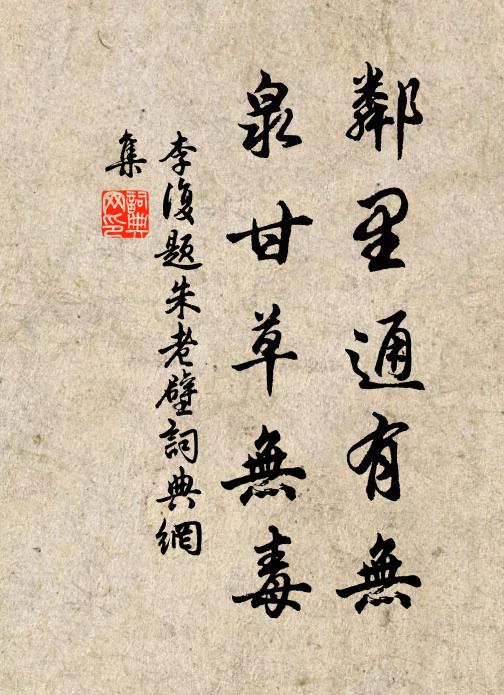 鄰里通有無
泉甘草無毒
李復題朱老壁詞典網
集
詞典
网印